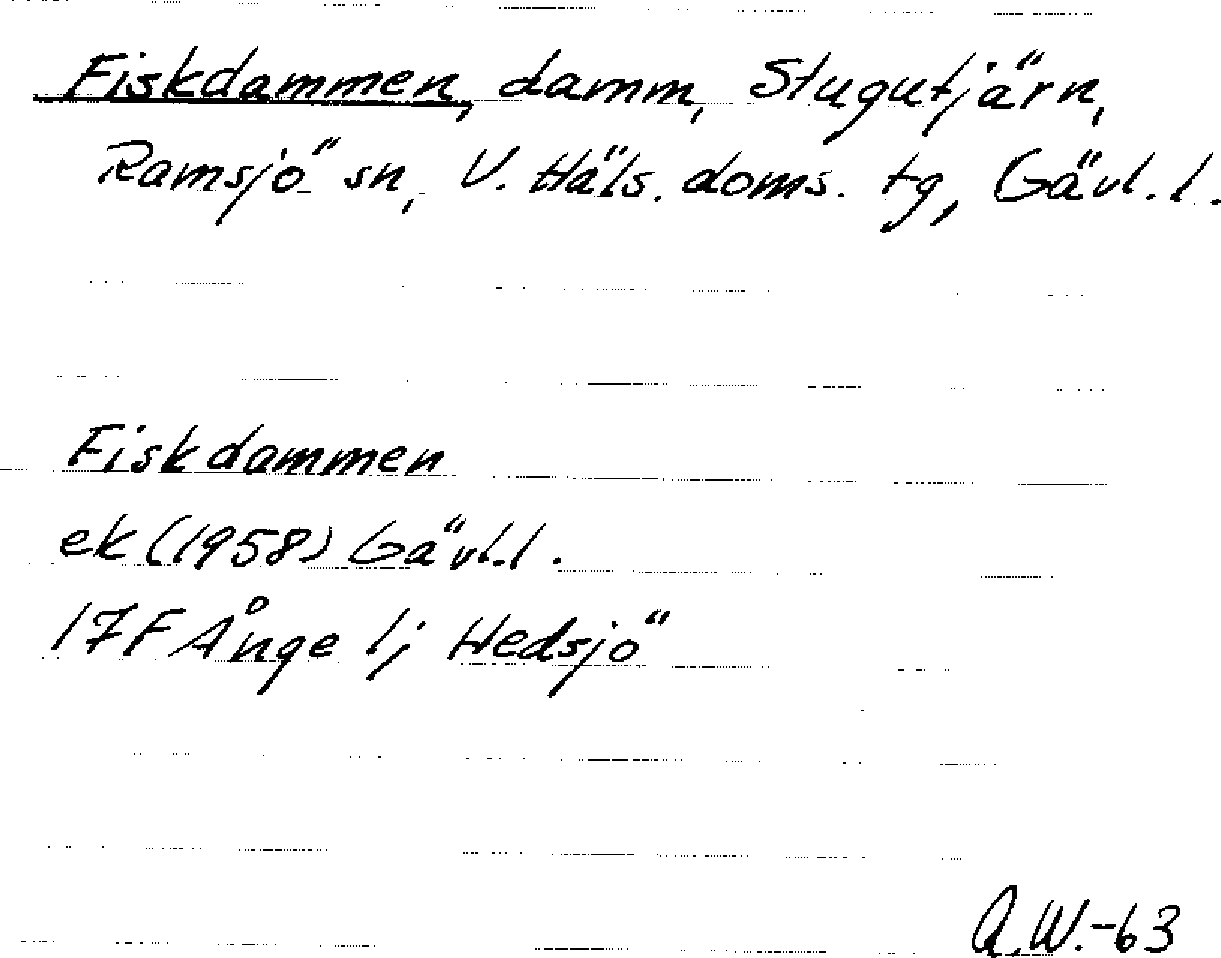 Fiskdammen, damm, Stugutjärn,
Ramsjö sn, V. Häls. doms. tg, Gävl. l.
Fiskdammen
ek (1958) Gävl. l.
17F Ånge 1j Hedsjö
A.W.-63